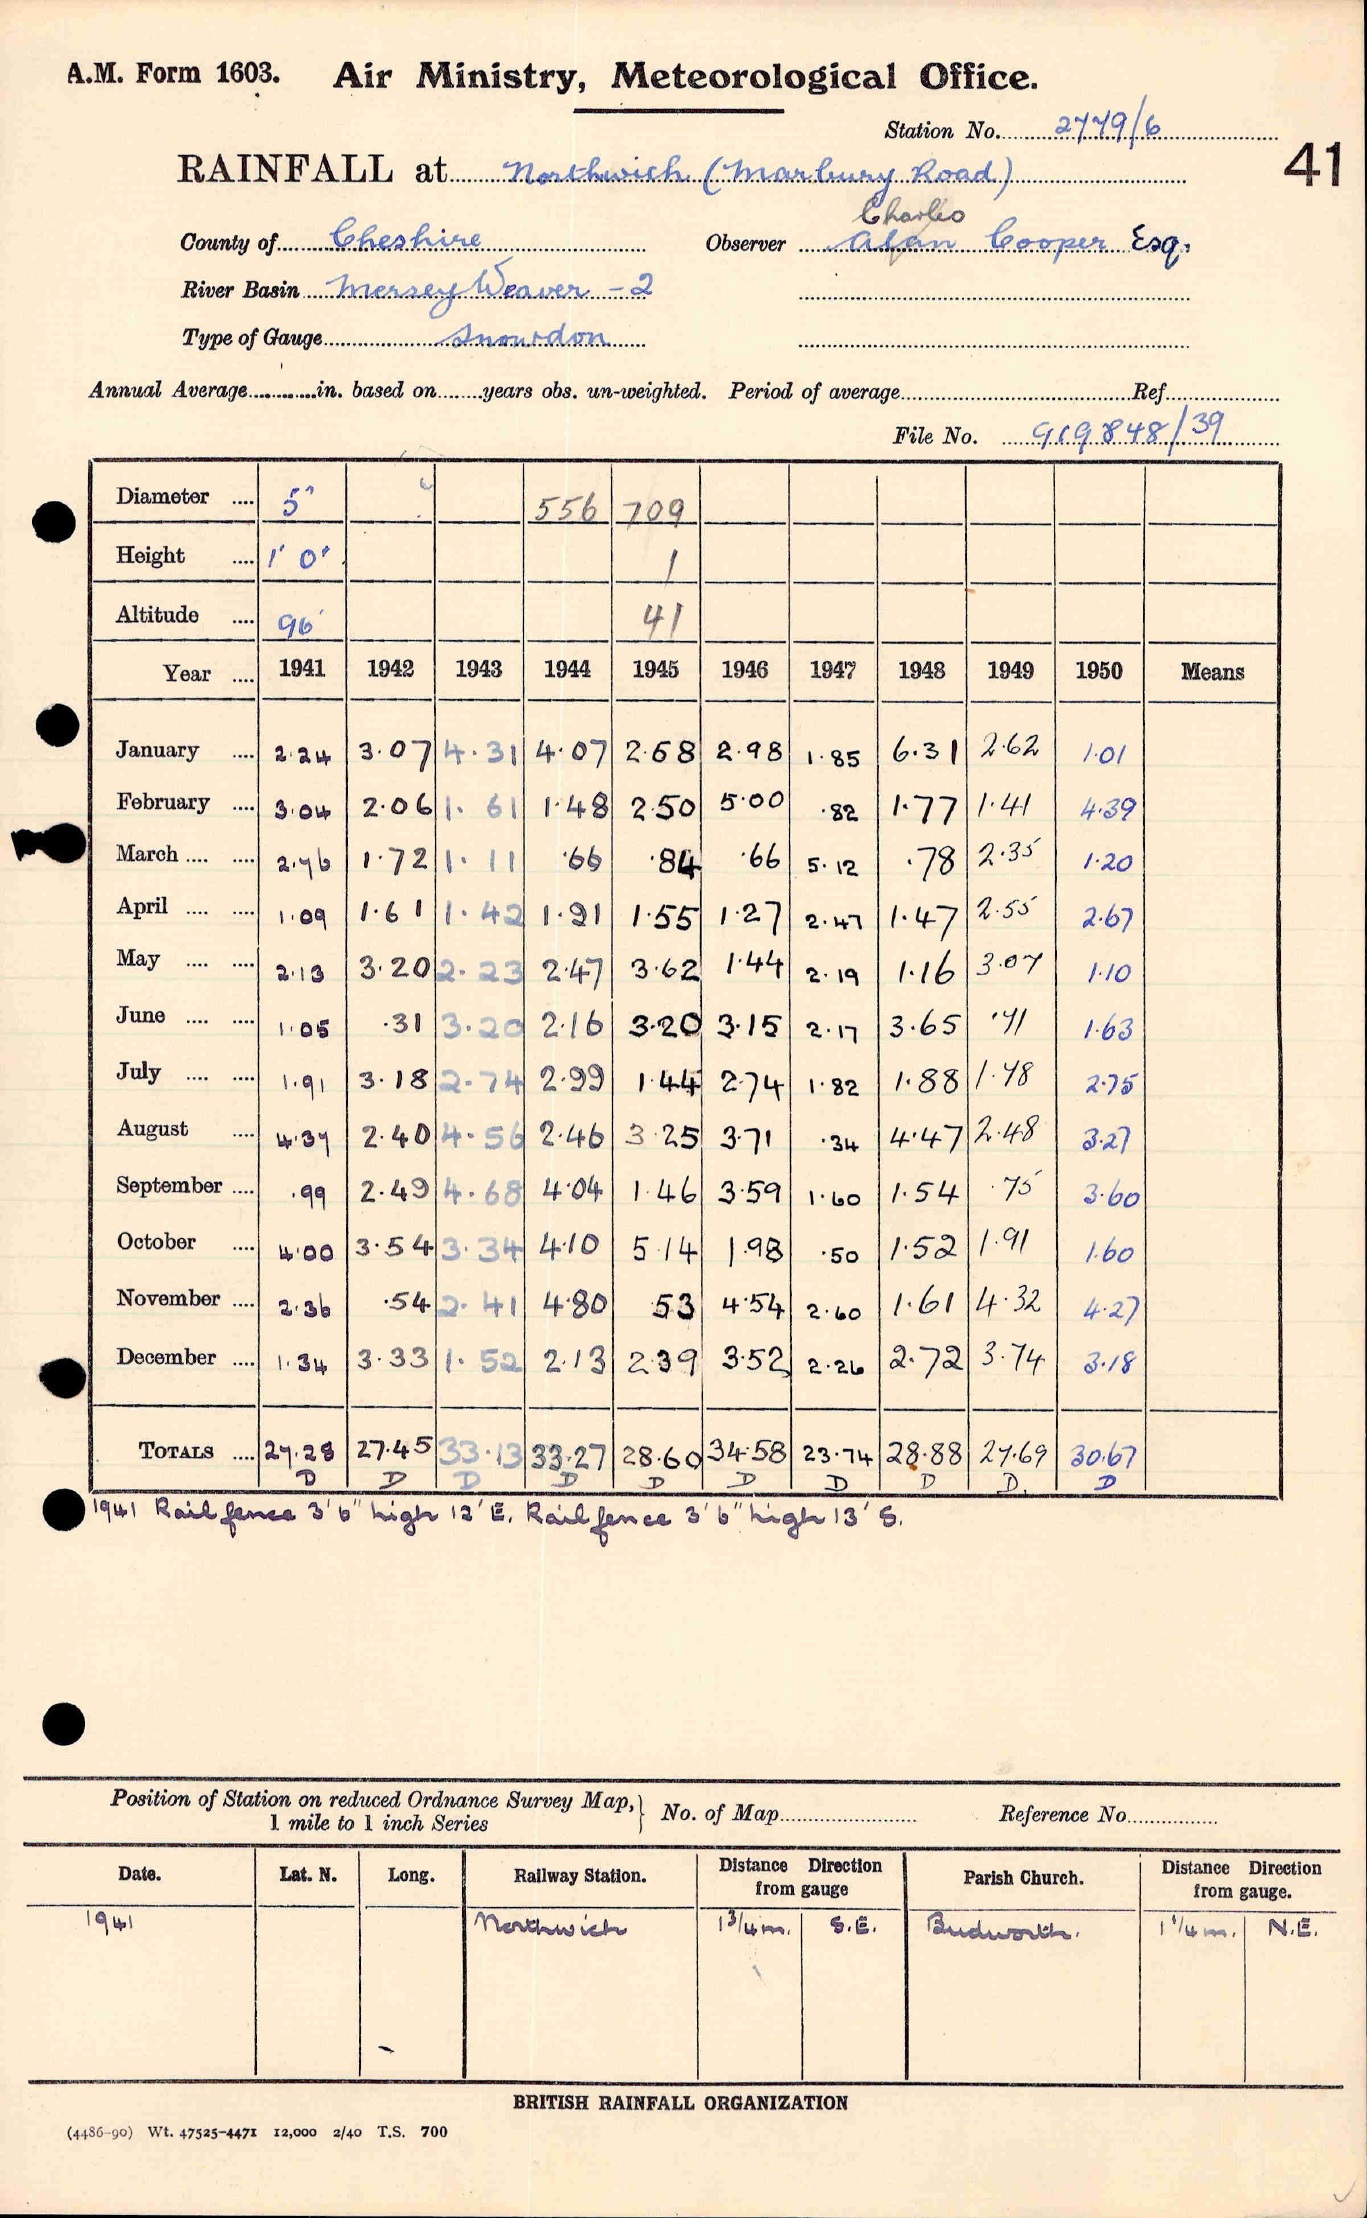 A.M. Form 1603. Air Ministry, Meteorological Office.
Station No. 2779/6
41
RAINFALL at Northwich (Marbury Road)
Charles
County of Cheshire Observer Alan Cooper Esq.
River Basin Mersey Weaver - 2
Type of Gauge Snowdon
Annual Average............in. based on.......years obs. un-weighted. Period of average Ref
File No. 919848/39
Diameter .... 5" 556 709
Height .... 1' 0" 1
Altitude .... 96' 41
Year .... 1941 1942 1943 1944 1945 1946 1947 1948 1949 1950 Means
January .... 2.24 3.07 4.31 4.07 2.68 2.98 1.85 6.31 2.62 1.01
February .... 3.04 2.06 1.61 1.48 2.50 5.00 .82 1.77 1.41 4.39
March .... .... 2.76 1.72 1.11 .66 .84 .66 5.12 .78 2.35 1.20
April .... .... 1.09 1.61 1.42 1.91 1.55 1.27 2.47 1.47 2.55 2.67
May .... .... 2.13 3.20 2.23 2.47 3.62 1.44 2.19 1.16 3.07 1.10
June .... .... 1.05 .31 3.20 2.16 3.20 3.15 2.17 3.65 .71 1.63
July .... .... 1.91 3.18 2.74 2.99 1.44 2.74 1.82 1.88 1.78 2.75
August .... 4.37 2.40 4.56 2.46 3.25 3.71 .34 4.47 2.48 3.27
September .... .99 2.49 4.68 4.04 1.46 3.59 1.60 1.54 .75 3.60
October .... 4.00 3.54 3.34 4.10 5.14 1.98 .50 1.52 1.91 1.60
November .... 2.36 .54 2.41 4.80 53 4.54 2.60 1.61 4.32 4.27
December .... 1.34 3.33 1.52 2.13 2.39 3.52 2.26 2.72 3.74 3.18
TOTALS .... 27.28 27.45 33.13 33.27 28.60 34.58 23.74 28.88 27.69 30.67
D D D D D D D D D. D
1941 Rail fence 3' 6" high 12' E. Rail fence 3' 6" high 13' S.
Position of Station on reduced Ordnance Survey Map, } No. of Map Reference No.
1 mile to 1 inch Series
Date. Lat. N. Long. Railway Station. Distance Direction from gauge Parish Church. Distance Direction from gauge.
1941 Northwich 1 3/4 m. S.E. Budworth. 1 1/4 m. N.E.
BRITISH RAINFALL ORGANIZATION
(4486-90) Wt. 47525-4471 12,000 2/40 T.S. 700